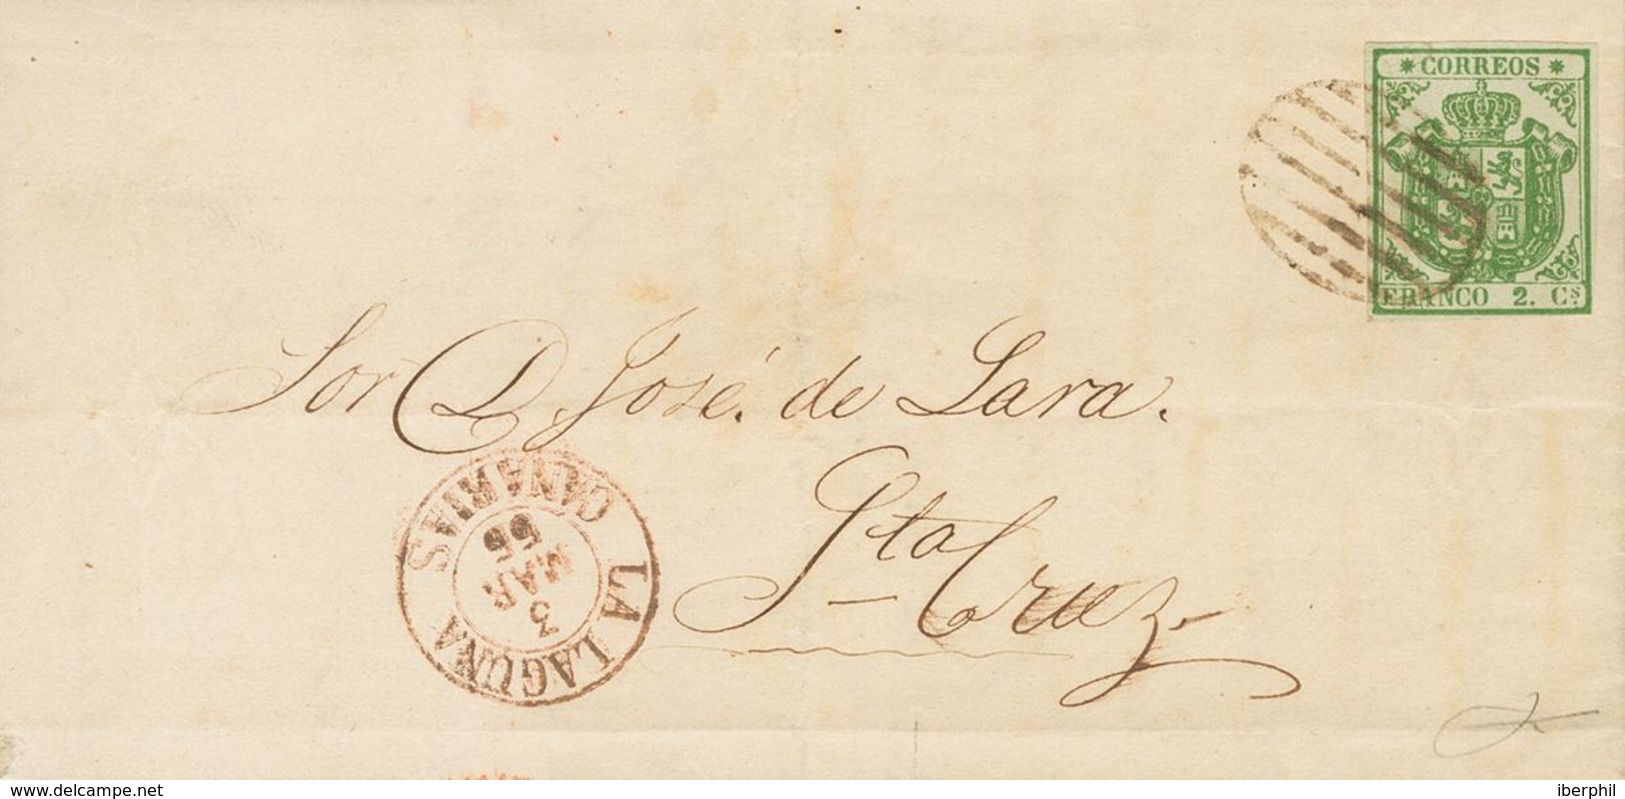 * CORREOS *
FRANCO 2. Cs.
Sor D. José. de Lara.
Sta Cruz.
LA LAGUNA
3
MAR
55
CANARIAS
www.delcampe.net
iberphil